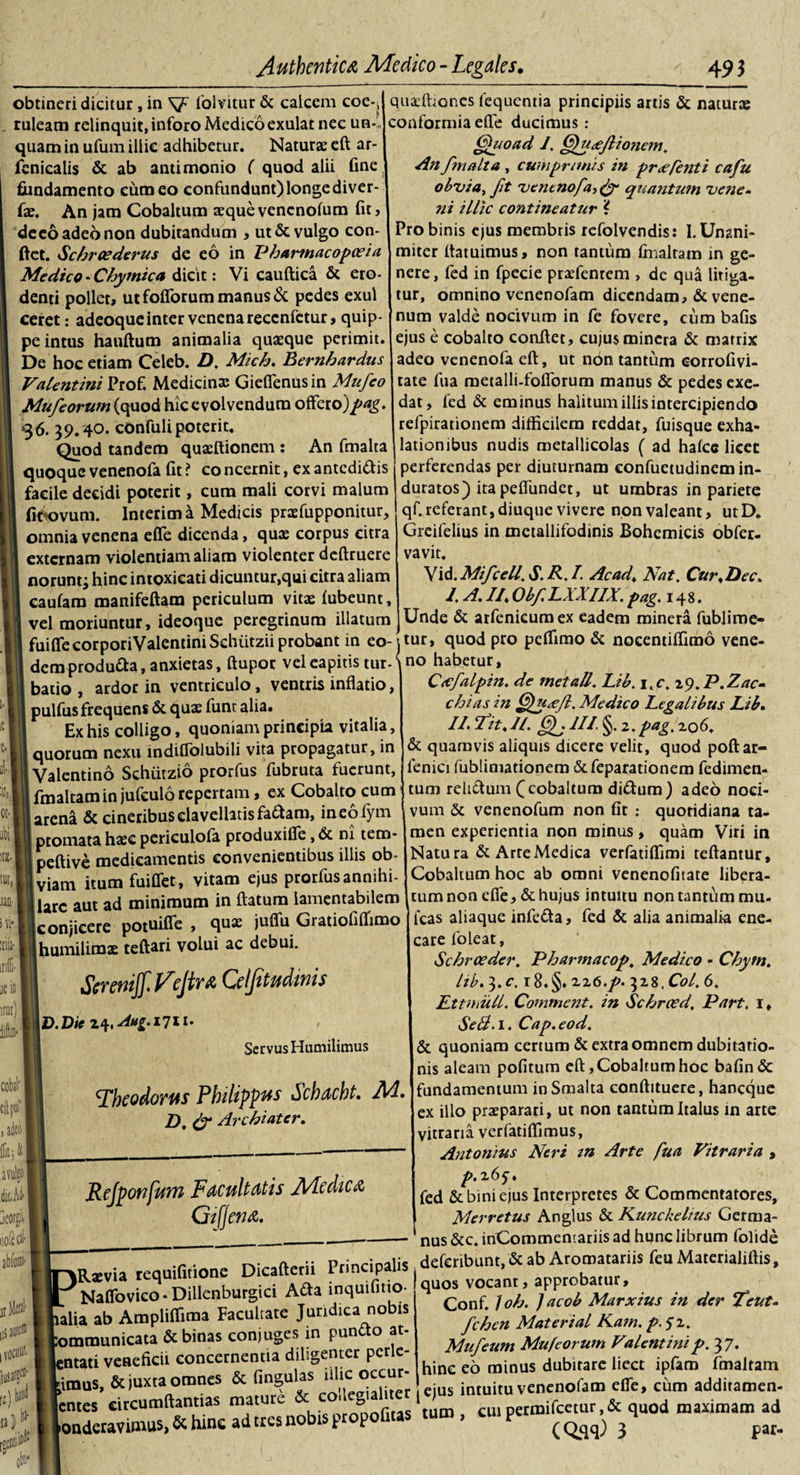 Authenticæ Medico - Legales. 493
obtineri dicitur, in 🜄 solvitur & calcem coe-
ruleam relinquit, in foro Medicô exulat nec un-
quam in usum illic adhibetur. Naturæ est ar-
senicalis & ab antimonio ( quod alii sine
fundamento cùm eo confundunt) longe diver-
sæ. An jam Cobaltum æquè venenosum sit,
de eô adeò non dubitandum , ut & vulgo con-
stet. Schrœderus de eô in Pharmacopœia
Medico-Chymica dicit : Vi causticâ & ero-
denti pollet, ut fossorum manus & pedes exul
ceret : adeoque inter venena recensetur, quip-
pe intus haustum animalia quæque perimit.
De hoc etiam Celeb. D. Mich. Bernhardus
Valentini Prof. Medicinæ Giessenus in Museo
Museorum (quod hîc evolvendum offero) pag.
36. 39. 40. consuli poterit.
Quod tandem quæstionem : An smalta
quoque venenosa sit ? concernit, ex antedictis
facile decidi poterit , cum mali corvi malum
sit ovum. Interim à Medicis præsupponitur,
omnia venena esse dicenda, quæ corpus citra
externam violentiam aliam violenter destruere
norunt; hinc intoxicati dicuntur, qui citra aliam
causam manifestam periculum vitæ subeunt,
vel moriuntur, ideoque peregrinum illatum
fuisse corpori Valentini Schützii probant in eo-
dem producta, anxietas, stupor vel capitis tur-
batio , ardor in ventriculo, ventris inflatio,
pulsus frequens & quæ sunt alia.
Ex his colligo , quoniam principia vitalia,
quorum nexu indissolubili vita propagatur, in
Valentinô Schützio prorsus subruta fuerunt,
smaltam in jusculô repertam , ex Cobalto cum
arenâ & cineribus clavellatis factam, in eô sym
ptomata hæc periculosa produxisse, & ni tem-
pestivè medicamentis convenientibus illis ob-
viam itum fuisset, vitam ejus prorsus annihi-
lare aut ad minimum in statum lamentabilem
conjicere potuisse , quæ jussu Gratiosissimo
humilimæ testari volui ac debui.
Sereniss. Vestræ Celsitudinis
D. Die 24. Aug. 1711.
Servus Humilimus
Theodorus Philippus Schacht. M.
D. & Archiater.
Responsum Facultatis Medicæ
Gissenæ.
PRævia requisitione Dicasterii Principalis
Nassovico-Dillenburgici Acta inquisitio-
nalia ab Amplissima Facultate Juridica nobis
communicata & binas conjuges in puncto at-
tentati veneficii concernentia diligenter perle-
gimus, & juxta omnes & singulas illic occur-
rentes circumstantias mature & collegialiter
ponderavimus, & hinc ad tres nobis propositas
quæstiones sequentia principiis artis & naturæ
conformia esse ducimus :
Quoad I. Quæstionem.
An smalta , cumprimis in præsenti casu
obvia, sit venenosa, & quantum vene-
ni illic contineatur ?
Pro binis ejus membris resolvendis: I. Unani-
miter statuimus, non tantùm smaltam in ge-
nere, sed in specie præsentem , de quâ litiga-
tur, omnino venenosam dicendam, & vene-
num valdè nocivum in se fovere, cùm basis
ejus è cobalto constet, cujus minera & matrix
adeo venenosa est, ut non tantùm corrosivi-
tate sua metalli-fossorum manus & pedes exe-
dat, sed & eminus halitum illis intercipiendo
respirationem difficilem reddat, suisque exha-
lationibus nudis metallicolas ( ad halce licet
perferendas per diuturnam consuetudinem in-
duratos) ita pessundet, ut umbras in pariete
qf. referant, diuque vivere non valeant, ut D.
Greiselius in metallifodinis Bohemicis obser-
vavit.
Vid. Miscell. S. R. I. Acad. Nat. Cur. Dec.
I. A. II. Obs. LXXIIX. pag. 148.
Unde & arsenicum ex eadem minerâ sublime-
tur, quod pro pessimo & nocentissimô vene-
no habetur,
Cæsalpin. de metall. Lib. 1. c. 29. P. Zac-
chias in Quæst. Medico Legalibus Lib.
II. Tit. II. Q. III. §. 2. pag. 206.
& quamvis aliquis dicere velit, quod post ar-
senici sublimationem & separationem sedimen-
tum relictum (cobaltum dictum) adeò noci-
vum & venenosum non sit : quotidiana ta-
men experientia non minus , quàm Viri in
Natura & Arte Medica versatissimi testantur,
Cobaltum hoc ab omni venenositate libera-
tum non esse, & hujus intuitu non tantùm mu-
scas aliaque insecta, sed & alia animalia ene-
care soleat,
Schrœder. Pharmacop. Medico - Chym.
lib. 3. c. 18. §. 226. p. 328. Col. 6.
Ettmüll. Comment. in Schrœd. Part. 1.
Sect. 1. Cap. eod.
& quoniam certum & extra omnem dubitatio-
nis aleam positum est, Cobaltum hoc basin &
fundamentum in Smalta constituere, hancque
ex illo præparari, ut non tantùm Italus in arte
vitraria versatissimus,
Antonius Neri in Arte sua Vitraria ,
p. 265.
sed & bini ejus Interpretes & Commentatores,
Merretus Anglus & Kunckelius Germa-
nus &c. in Commentariis ad hunc librum solidè
describunt, & ab Aromatariis seu Materialistis,
quos vocant, approbatur,
Conf. Joh. Jacob Marxius in der Teut-
schen Material Kam. p. 52.
Museum Museorum Valentini p. 37.
hinc eò minus dubitare licet ipsam smaltam
ejus intuitu venenosam esse, cùm additamen-
tum , cui permiscetur, & quod maximam ad
(Qqq) 3 par-